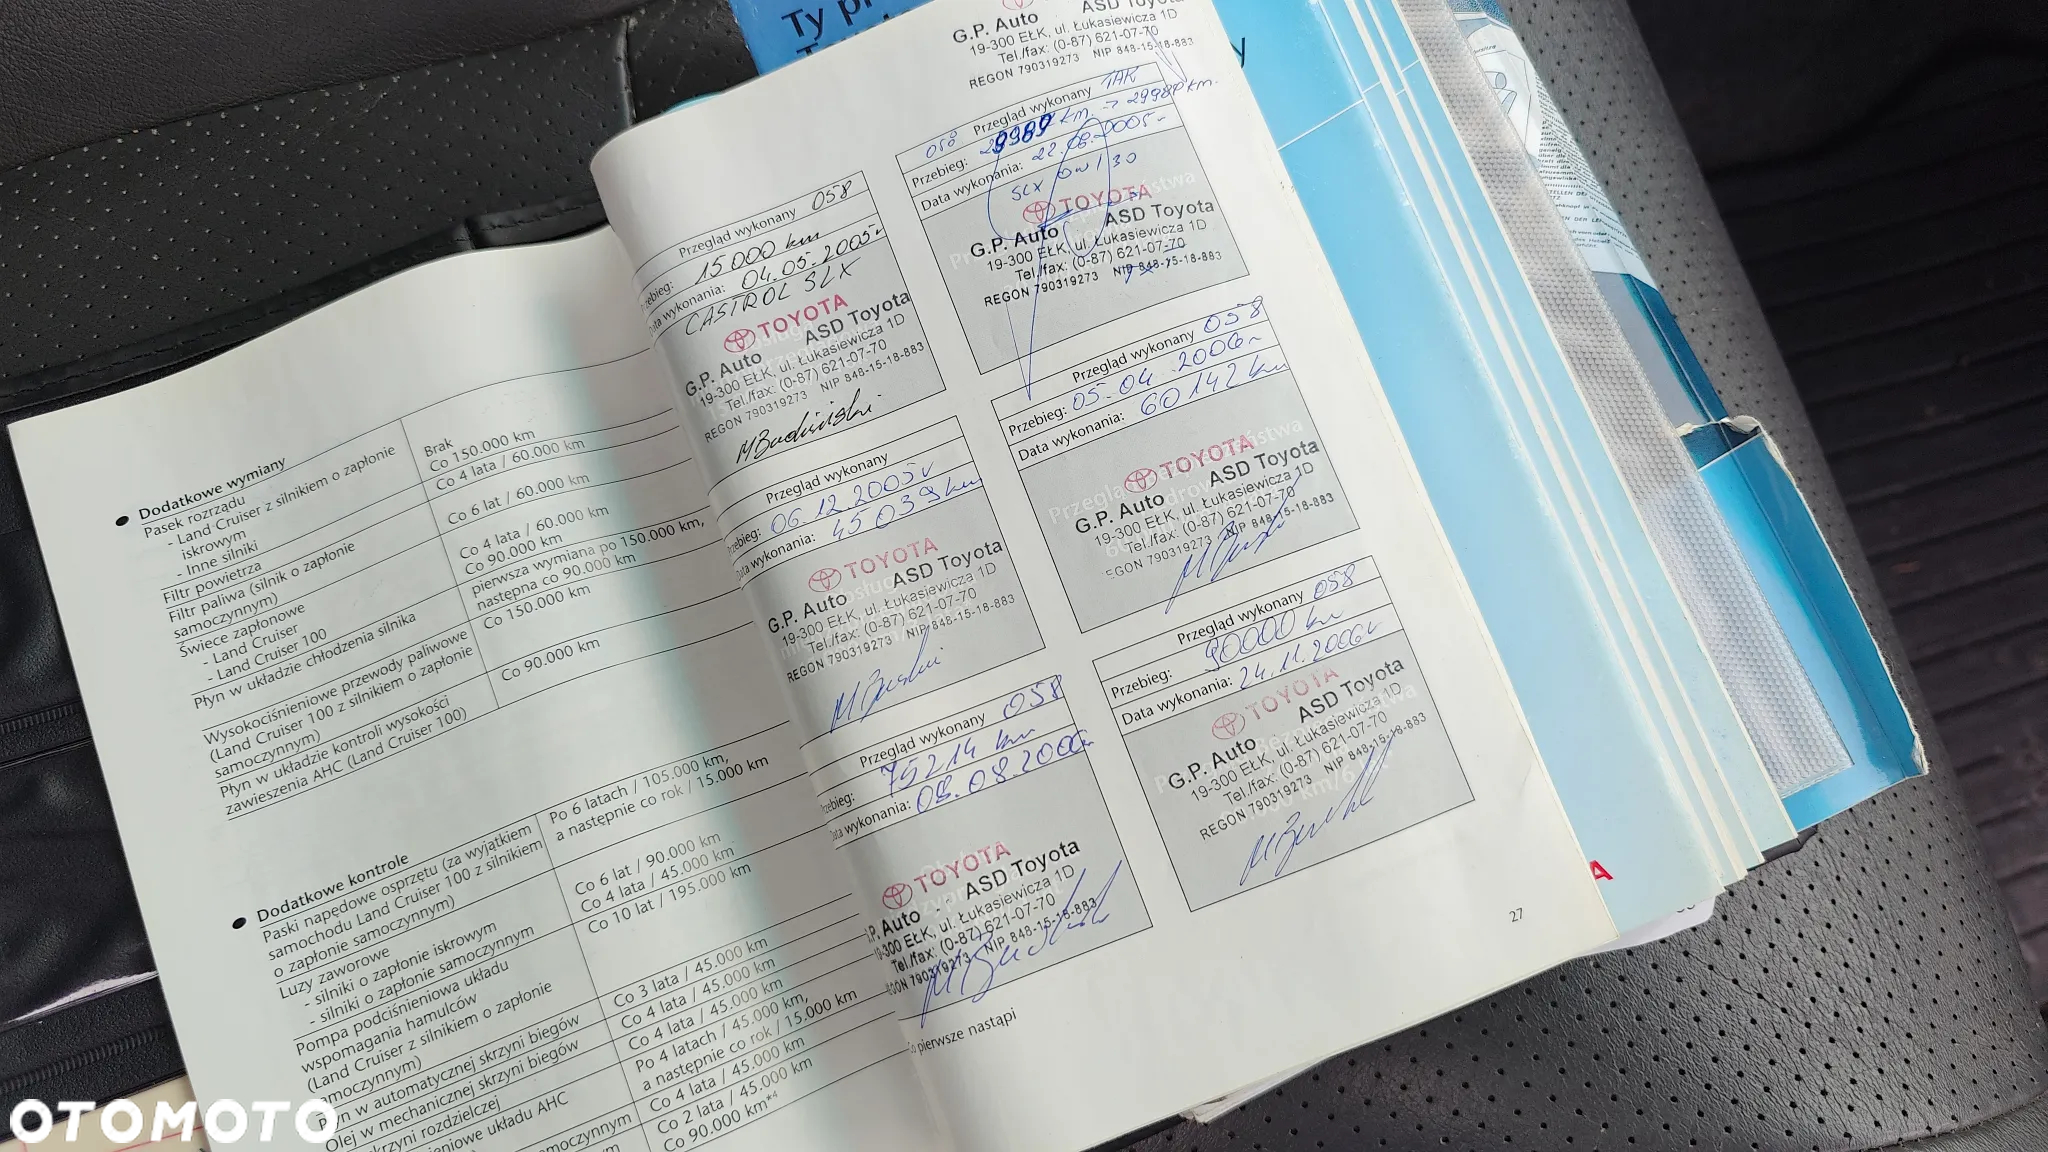 Ty
G.P. Auto ASD Toyota
19-300 EŁK, ul. Łukasiewicza 1D
Tel./fax: (0-87) 621-07-70
REGON 790319273 NIP 848-15-18-883
Dodatkowe wymiany
Pasek rozrządu
- Land Cruiser z silnikiem o zapłonie
iskrowym
Brak
- Inne silniki
Co 150.000 km
Filtr powietrza
Co 4 lata / 60.000 km
Filtr paliwa (silnik o zapłonie
samoczynnym)
Co 6 lat / 60.000 km
Świece zapłonowe
- Land Cruiser
Co 4 lata / 60.000 km
- Land Cruiser 100
Co 90.000 km
Płyn w układzie chłodzenia silnika
pierwsza wymiana po 150.000 km,
następna co 90.000 km
Wysokociśnieniowe przewody paliwowe
(Land Cruiser 100 z silnikiem o zapłonie
samoczynnym)
Co 150.000 km
Płyn w układzie kontroli wysokości
zawieszenia AHC (Land Cruiser 100)
Co 90.000 km
Dodatkowe kontrole
Paski napędowe osprzętu (za wyjątkiem
samochodu Land Cruiser 100 z silnikiem
o zapłonie samoczynnym)
Po 6 latach / 105.000 km,
a następnie co rok / 15.000 km
Luzy zaworowe
- silniki o zapłonie iskrowym
Co 6 lat / 90.000 km
- silniki o zapłonie samoczynnym
Co 4 lata / 45.000 km
Pompa podciśnieniowa układu
wspomagania hamulców
(Land Cruiser z silnikiem o zapłonie
samoczynnym)
Co 10 lat / 195.000 km
Płyn w automatycznej skrzyni biegów
Co 3 lata / 45.000 km
Olej w mechanicznej skrzyni biegów
Co 4 lata / 45.000 km
skrzyni rozdzielczej
Co 4 lata / 45.000 km
układu AHC
Po 4 latach / 45.000 km,
a następnie co rok / 15.000 km
samoczynnym
Co 4 lata / 45.000 km
Co 2 lata / 45.000 km
Co 90.000 km*4
Przegląd wykonany 058
Przebieg: 15 000 km
Data wykonania: 04.05.2005r
CASTROL SLX
TOYOTA
G.P. Auto ASD Toyota
19-300 EŁK, ul. Łukasiewicza 1D
Tel./fax: (0-87) 621-07-70
REGON 790319273 NIP 848-15-18-883
Przegląd wykonany TAK
058
Przebieg: km. → 29980 km.
Data wykonania: 22.08.2005r
SLX 0W/30
TOYOTA
G.P. Auto ASD Toyota
19-300 EŁK, ul. Łukasiewicza 1D
Tel./fax: (0-87) 621-07-70
REGON 790319273 NIP 848-15-18-883
Przegląd wykonany
Przebieg: 06.12.2005r
Data wykonania: 45 039 km
TOYOTA
G.P. Auto ASD Toyota
19-300 EŁK, ul. Łukasiewicza 1D
Tel./fax: (0-87) 621-07-70
REGON 790319273 NIP 848-15-18-883
Przegląd wykonany 058
Przebieg: 05.04.2006r
Data wykonania: 60 142 km
TOYOTA
G.P. Auto ASD Toyota
19-300 EŁK, ul. Łukasiewicza 1D
Tel./fax: (0-87) 621-07-70
EGON 790319273 NIP 848-15-18-883
Przegląd wykonany 058
zebieg: 75214 km
Data wykonania: 08.08.2006r
TOYOTA
P. Auto ASD Toyota
19-300 EŁK, ul. Łukasiewicza 1D
Tel./fax: (0-87) 621-07-70
GON 790319273 NIP 848-15-18-883
Przegląd wykonany 058
Przebieg: 90000 km
Data wykonania: 24.11.2006r
TOYOTA
G.P. Auto ASD Toyota
19-300 EŁK, ul. Łukasiewicza 1D
Tel./fax: (0-87) 621-07-70
REGON 790319273 NIP 848-15-18-883
co pierwsze nastąpi
27
OTOMOTO